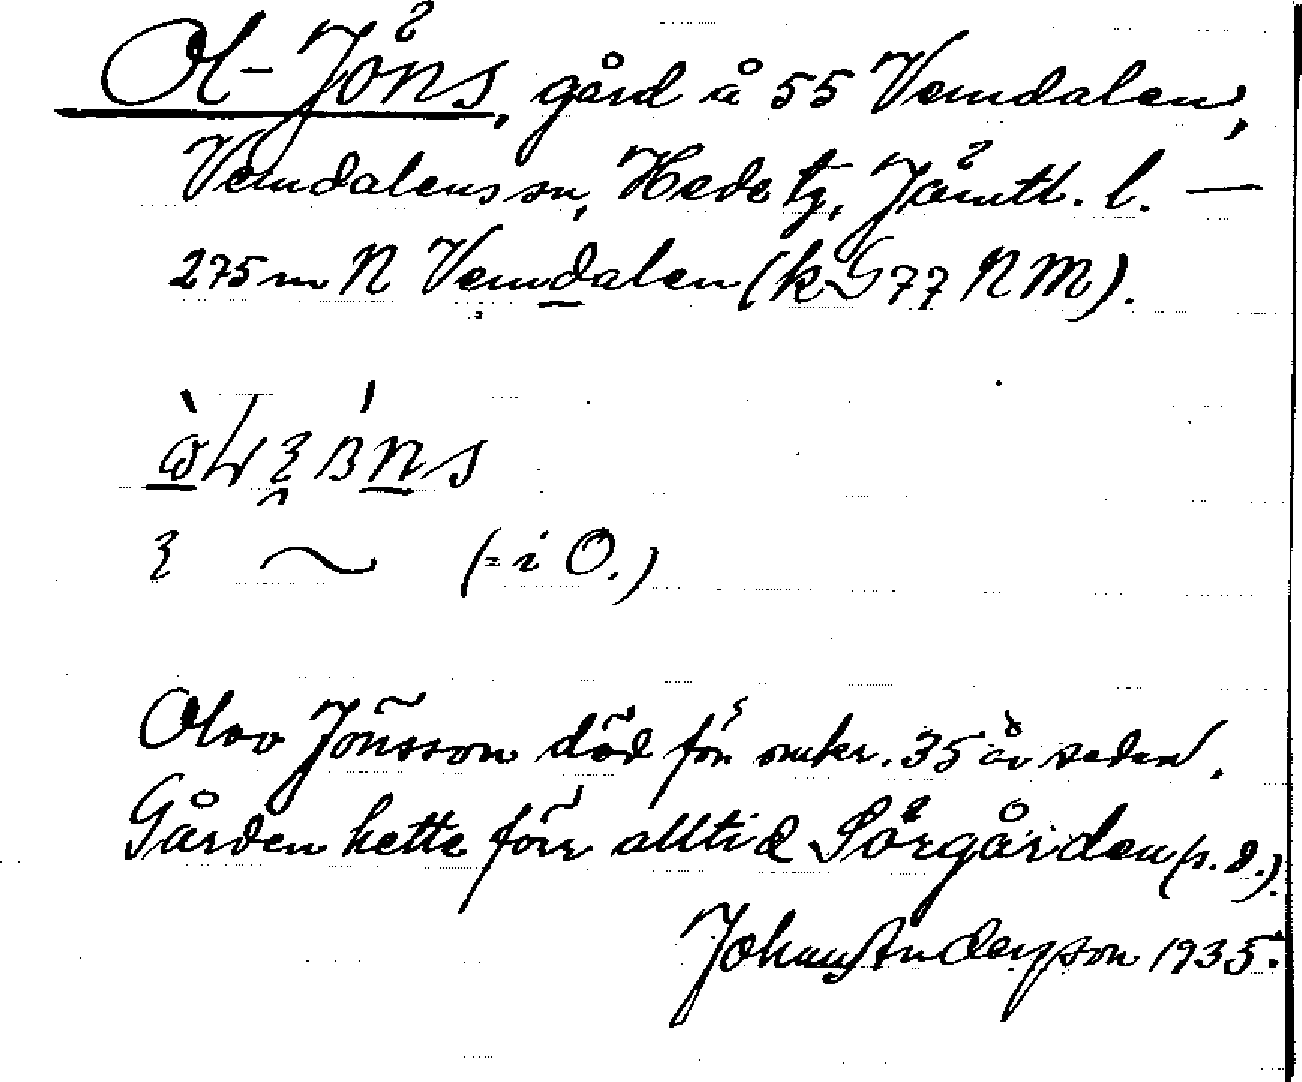 Ol-Jöns, gård å 55 Vemdalen,
Vemdalens sn, Hede tg, Jämtl. l. —
275 m N Vemdalen (k G 77 N M).
(= i O.)
Olov Jönsson död för omkr. 35 år sedan.
Gården hette förr alltid Sörgården (s. d.).
Johan Anderson 1935.